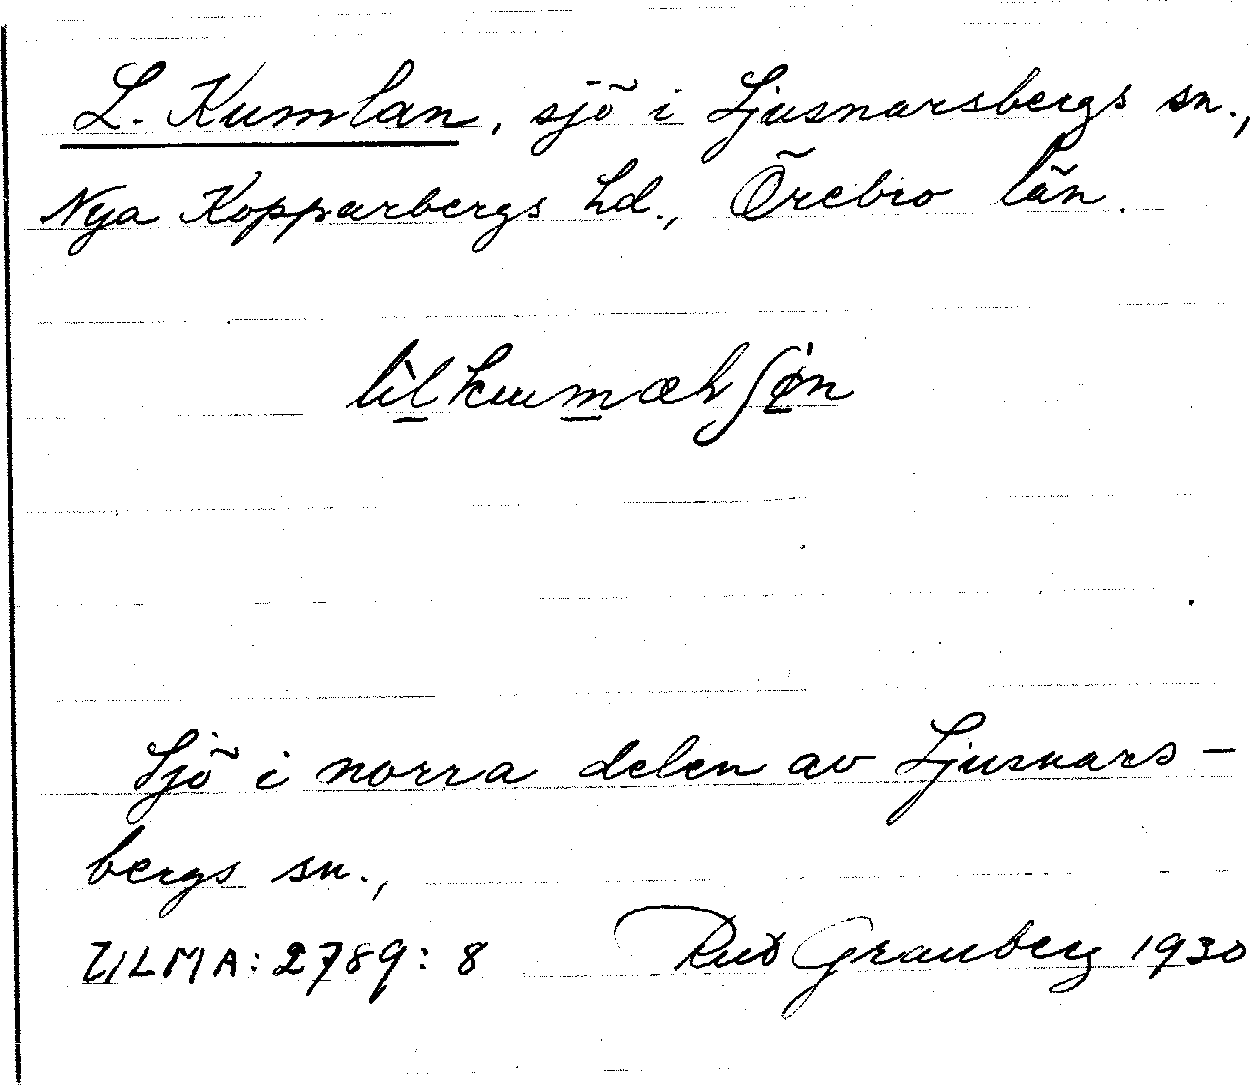 L. Kumlan, sjö i Ljusnarsbergs sn.,
Nya Kopparbergs hd., Örebro län.
Sjö i norra delen av Ljusnars-
bergs sn.,
ULMA: 2789: 8 Rud Granberg 1930